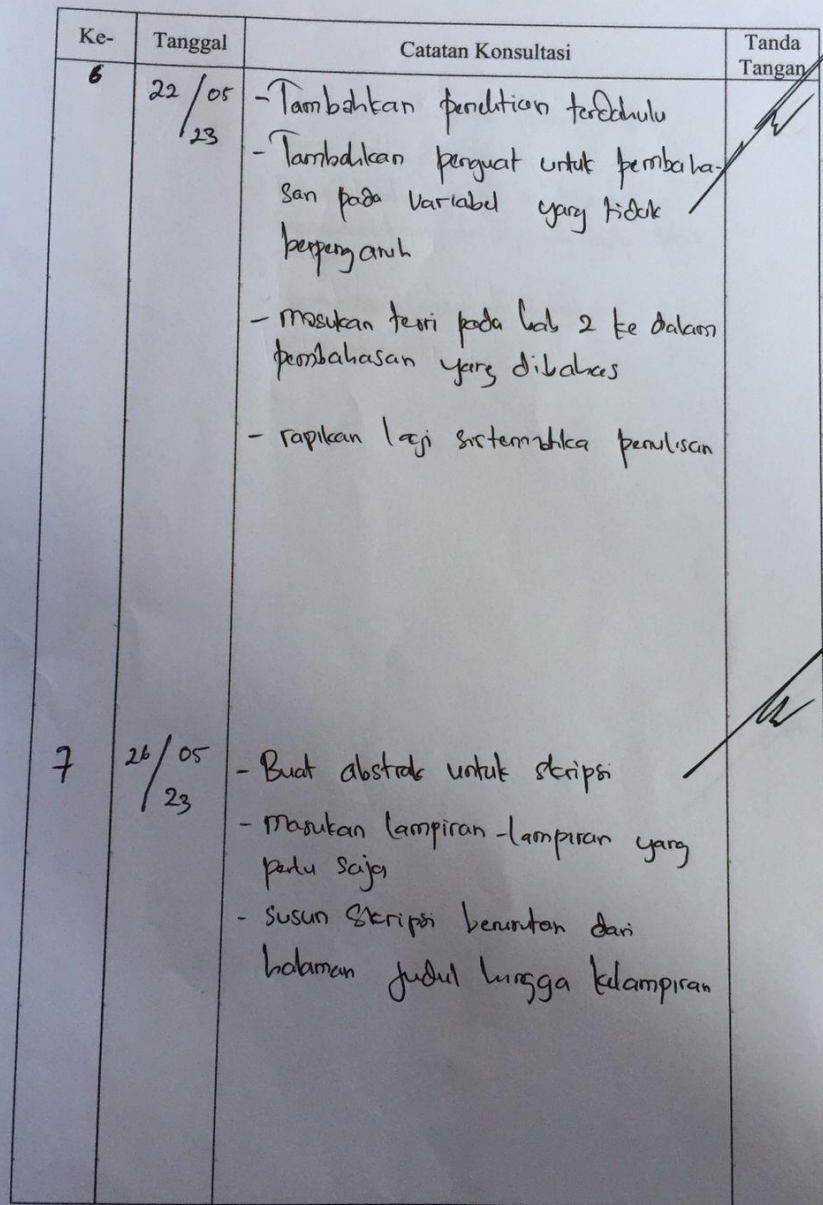 Ke- Tanggal Catatan Konsultasi Tanda Tangan
6 22/05/23 - Tambahkan penelitian terdahulu
- Tambahkan penguat untuk pembaha-
san pada variabel yang tidak
berpengaruh
- masukan teori pada bab 2 ke dalam
pembahasan yang dibahas
- rapikan lagi sistematika penulisan
7 26/05/23 - Buat abstrak untuk skripsi
- masukan lampiran-lampiran yang
perlu saja
- susun skripsi berurutan dari
halaman judul hingga kelampiran